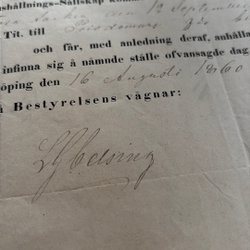 ushållnings-Sällskap kom
12 September
Tit. till Prisdomare
och får, med anledning deraf, anhålla
infinna sig å nämnde ställe ofvansagde dag
öping den 16 Augusti 1860
å Bestyrelsens vägnar: